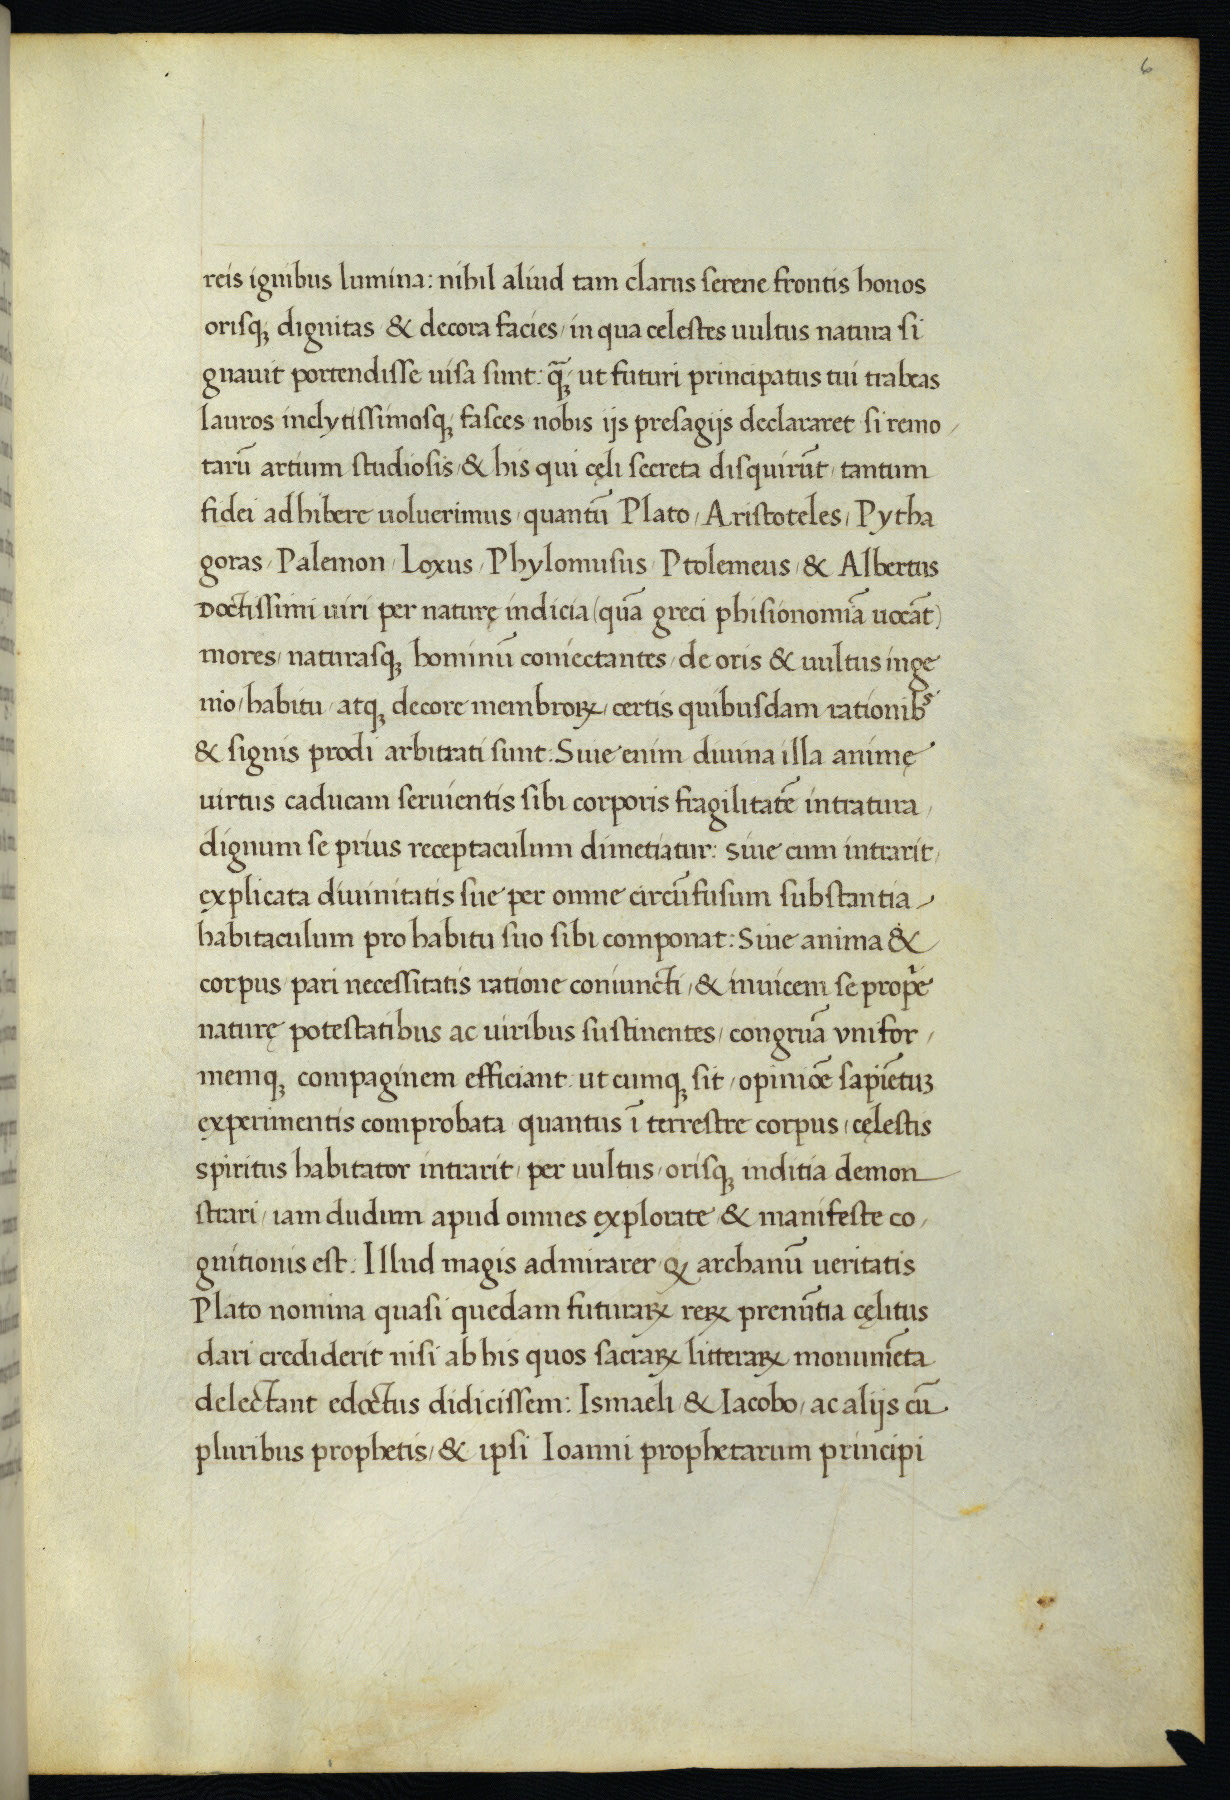 6
reis ignibus lumina: nihil aliud tam clarus serene frontis honos
orisq; dignitas & decora facies, in qua celestes uultus natura si
gnauit portendisse uisa sunt: q̃; ut futuri principatus tui trabeas
lauros inclytissimosq; fasces nobis ijs presagijs declararet si remo,
tarū artium studiosis, & his qui cęli secreta disquirūt, tantum
fidei adhibere uoluerimus, quantū Plato, Aristoteles, Pytha
goras, Palemon, Loxus, Phylomusus, Ptolemeus, & Albertus
doctissimi uiri per naturę indicia (quā greci phisionomiā uocāt)
mores, naturasq; hominū coniectantes, de oris & uultus inge
nio, habitu, atq; decore membroꝝ, certis quibusdam rationibꝰ
& signis prodi arbitrati sunt: Siue enim diuina illa animę
uirtus caducam seruientis sibi corporis fragilitatē intratura,
dignum se prius receptaculum dimetiatur: siue cum intrarit,
explicata diuinitatis sue per omne circūfusum substantia,
habitaculum pro habitu suo sibi componat: Siue anima &
corpus pari necessitatis ratione coniuncti, & inuicem se propͥe
naturę potestatibus ac uiribus sustinentes, congruā vnifor,
memq; compaginem efficiant: ut cumq; sit, opiniōe sapiētuꝫ
experimentis comprobata quantus ī terrestre corpus, cęlestis
spiritus habitator intrarit, per uultus, orisq; inditia demon
strari, iam dudum apud omnes explorate & manifeste co,
gnitionis est. Illud magis admirarer ꝙ archanū ueritatis
Plato nomina quasi quedam futuraꝝ reꝝ prenūtia cęlitus
dari crediderit nisi ab his quos sacraꝝ litteraꝝ monumēta
delectant edoctus didicissem: Ismaeli & Iacobo, ac alijs cū
pluribus prophetis, & ipsi Ioanni prophetarum principi